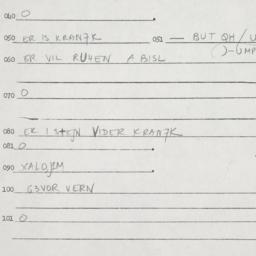 040 O
050 ER IS KRAN7K 051 — BUT QH/U
060 ER VIL RU4EN A BISL ( )-UMP
070 O
080 ER I STEJN VIDER KRAN7K
081 O
090 XALOJEM
100 G3VOR VERN
101 O